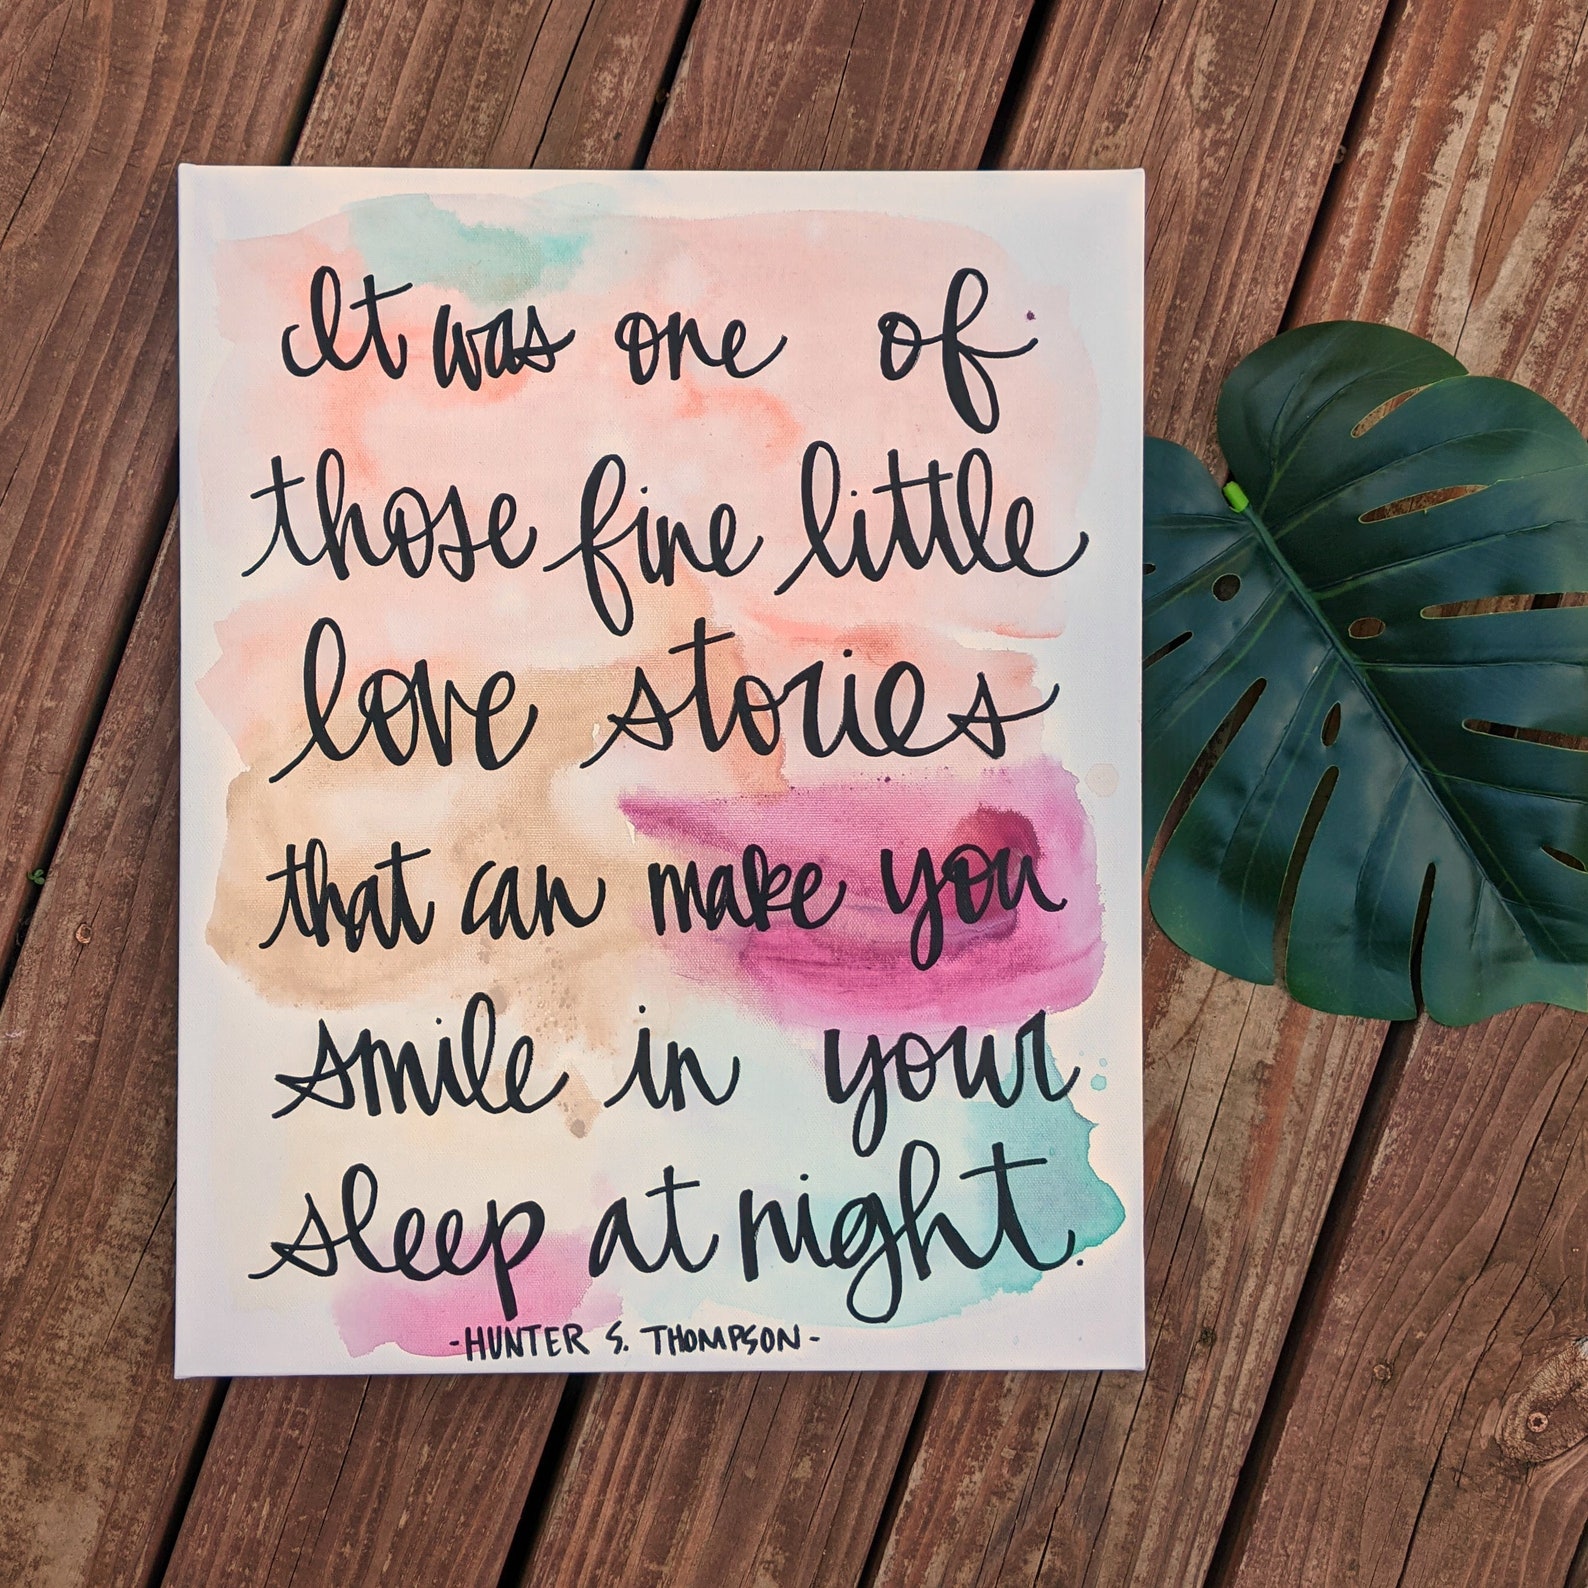 It was one of
those fine little
love stories
that can make you
smile in your
sleep at night.
-HUNTER S. THOMPSON-